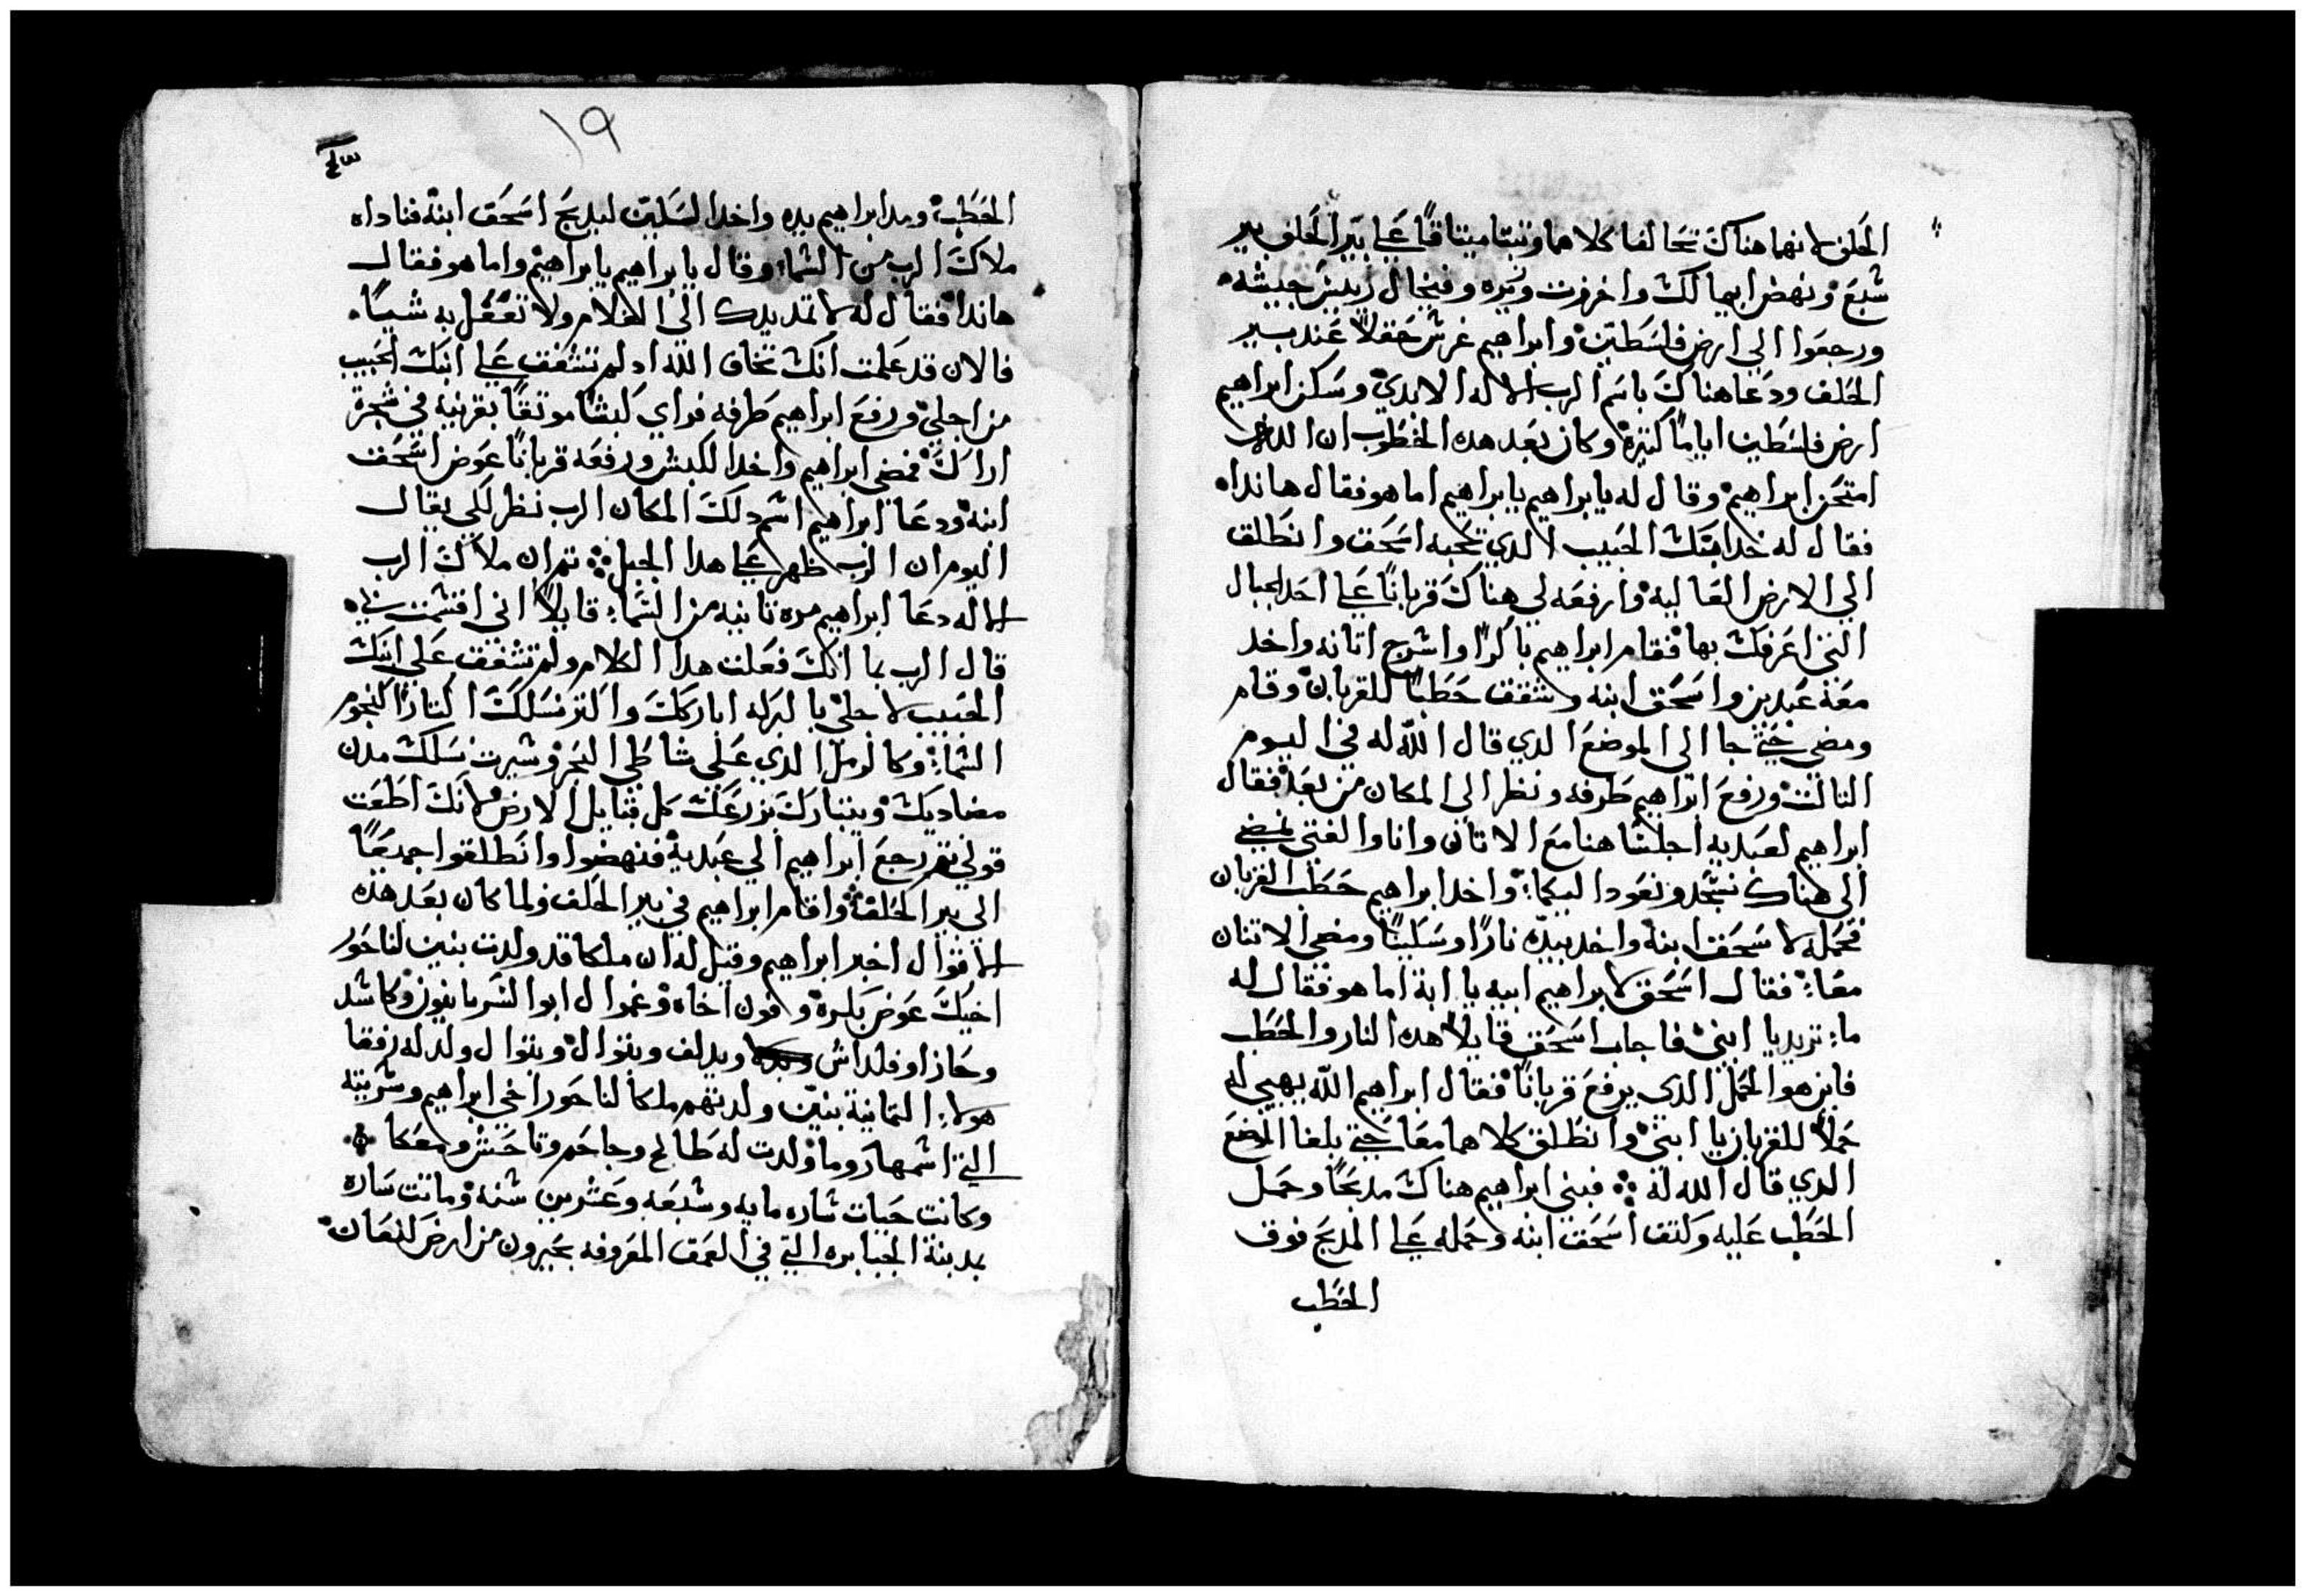 الحلف لانهما هناك تحالفا كلاهما وثبتا ميتاقًا علي بير الحلف بير
شبع ونهض ابيمالك واخزوت وزيره وفيخال رييس جيشه
ورجعوا الي ارض فلسطين وابراهيم غرس حقلاً عند بير
الحلف ودعا هناك باسم الرب الاله الابدي وسكن ابراهيم
ارض فلسطين اياماً كتيرة وكان بعد هده الخطوب ان الله
امتحن ابراهيم وقال له يابراهيم يابراهيم اما هو فقال هاندا
فقال له خد ابنك الحبيب الدي تحبه اسحق وانطلق
الي الارض العاليه وارفعه لي هناك قربانًا علي احد الجبال
التي اعرفك بها فقام ابراهيم باكرًا واسرج اتانه واخد
معه عبدين واسحق ابنه وشقق حطبًا للقربان وقام
ومضي حتي جا الي الموضع الدي قال الله له في اليوم
التالت ورفع ابراهيم طرفه ونظر الي المكان من بعد فقال
ابراهيم لعبديه اجلسا هنا مع الاتان وانا والفتي نمضي
الي هناك نسجد ونعود اليكما واخد ابراهيم حطب القربان
فحمله لاسحق ابنه واخد بيده نارًا وسكينًا ومضي الاتنان
معًا فقال اسحق لابراهيم ابيه يا ابة اما هو فقال له
ما تريد يا ابني فاجاب اسحق قايلاً هده النار والحطب
فاين هوا الحمل الدي يرفع قربانًا فقال ابراهيم الله يهيي له
حملاً للقربان يا ابني وانطلق كلاهما معًا حتي بلغا الموضع
الدي قال الله له فبني ابراهيم هناك مدبحًا وحمل
الحطب عليه وكتف اسحق ابنه وحمله علي المدبح فوق
الحطب
١٩
الحطب ومد ابراهيم يده واخد السكين ليدبح اسحق ابنه فناداه
ملاك الرب من السما وقال يابراهيم يابراهيم واما هو فقال
هاندا فقال له لا تمد يدك الي الغلام ولا تفعل به شياً
فالان قد علمت انك تخاف الله اد لم تشفق علي ابنك الحبيب
من اجلي ورفع ابراهيم طرفه فراي كبشًا موتقًا بقرنيه في شجرة
اراك فمضي ابراهيم واخد الكبش ورفعه قربانًا عوض اسحق
ابنه ودعا ابراهيم اسم دلك المكان الرب نظر لكي يقال
اليوم ان الرب ظهر علي هدا الجبل تم ان ملاك الرب
الاله دعا ابراهيم مره تانيه من السما قايلاً اني اقسمت بي
قال الرب بما انك فعلت هدا الكلام ولم تشفق علي ابنك
الحبيب لاجلي بالبركه اباركك واكتر نسلك اكتارًا كنجوم
السما وكالرمل الدي علي شاطي البحر وسيرت نسلك مدن
مضاديك ويتبارك بزرعك كل قبايل الارض لانك اطعت
قولي تم رجع ابراهيم الي عبديه فنهضوا وانطلقوا جميعًا
الي بير الحلف واقام ابراهيم في بير الحلف ولما كان بعد هذه
الاقوال اخبر ابراهيم وقيل له ان ملكا قد ولدت بنين لناحور
اخيك عوض بكره وفون اخاه وغموال ابوا السريانيون وكاشد
وحازا وفلداش ويدلف وبتوال وبتوال ولد له رفقا
هولاء التمانية بنين ولدتهم ملكا لناحور اخي ابراهيم وسريته
التي اسمها روما ولدت له طابح وجاحم وتاحش ومعكا
وكانت حيات ساره مايه وسبعه وعشرين سنه وماتت ساره
بمدينة الجبابره التي في العمق المعروفه بحبرون من ارض كنعان